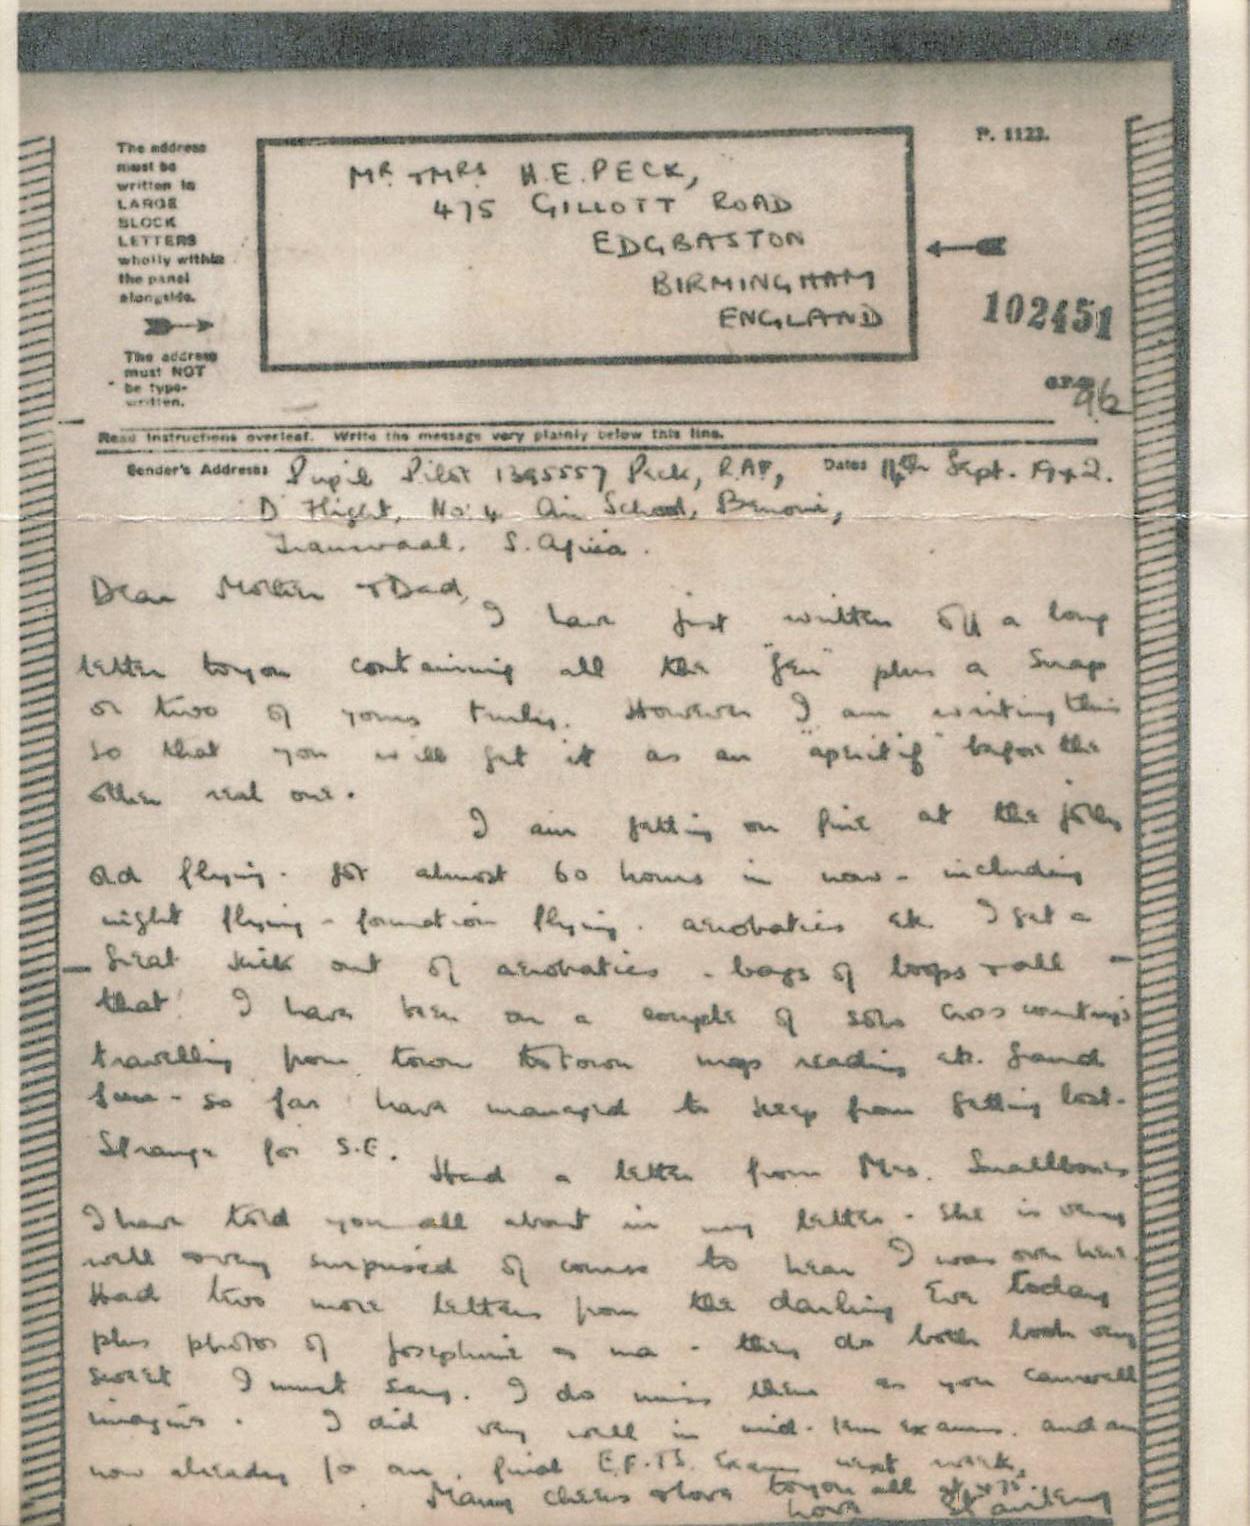 P. 1122.
The address
must be
written in
LARGE
BLOCK
LETTERS
wholly within
the panel
alongside.
The address
must NOT
be type-
written.
MR. + MRS H.E. PECK,
475 GILLOTT ROAD
EDGBASTON
BIRMINGHAM
ENGLAND
102451
96
Read instructions overleaf. Write the message very plainly below this line.
Sender's Address Pupil Pilot 1395557 Peck, RAF, Date 14th Sept. 1942.
D Flight, No: 4 Air School, Benoni,
Transvaal. S. Africa.
Dear Mother + Dad,
I have just written off a long
letter to you containing all the "gen" plus a snap
or two of yours truly. However I am writing this
so that you will get it as an "apertif" before the
other real one.
I am getting on fine at the jolly
old flying. Got almost 60 hours in now - including
night flying - formation flying. aerobatics etc. I get a
great kick out of aerobatics - bags of loops + all
that! I have been on a couple of solo cross country's
travelling from town to town map reading etc. Grand
fun - so far have managed to keep from getting lost.
Strange for S.E.
Had a letter from Mrs. Smallbones
I have told you all about in my letter - she is very
well + very surprised of course to hear I was over here.
Had two more letters from the darling Eve today
plus photos of Josephine + ma - they do both look very
sweet I must say. I do miss them as you can well
imagine. I did very well in mid-term exams. and am
now already for our final E.F.T.S. Exam next week.
Many cheers + love to you all at 475.
love Stanley